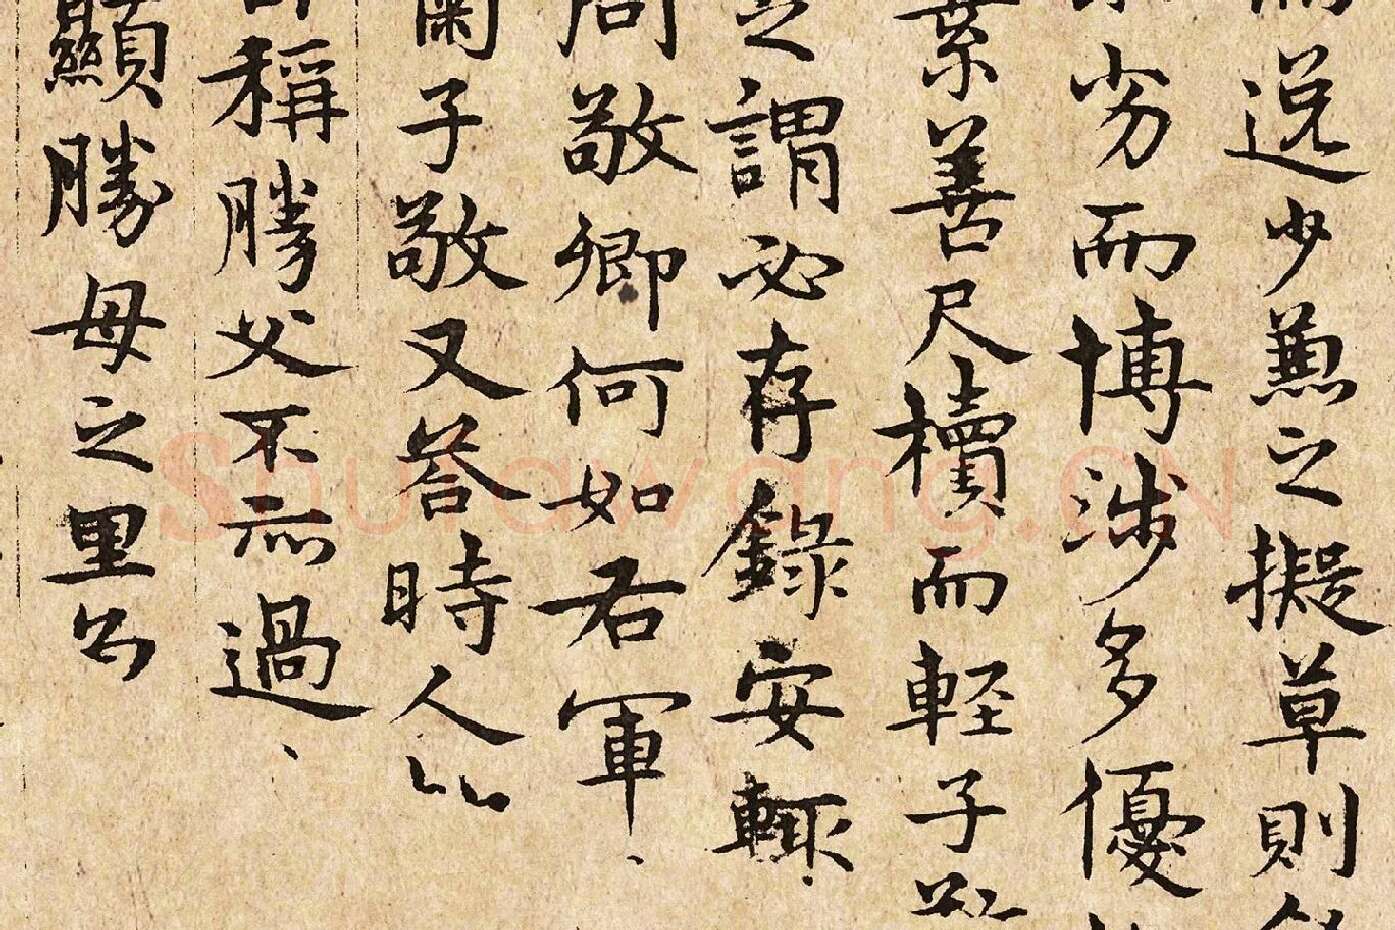 逸少兼之擬草則
劣而博涉多優
素善尺牘而輕子敬
之謂必存錄安輒
問敬卿何如右軍
闌子敬又答時人
稱勝父不亦過
顯勝母之里公
Shufawang.CN